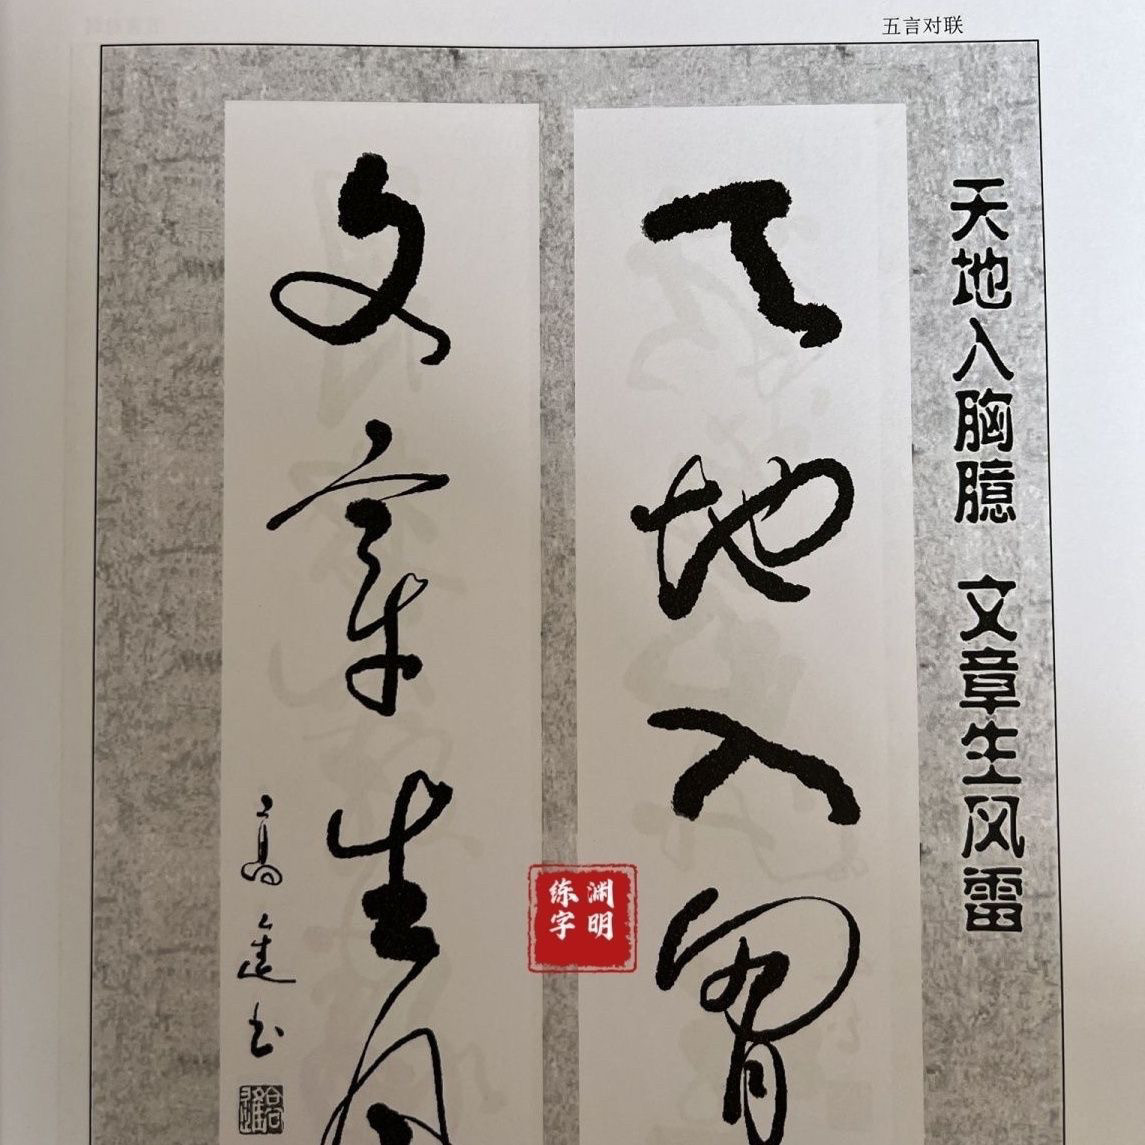 五言对联
天地入胸臆 文章生风雷
天地入胷
文章生
渊明
练字